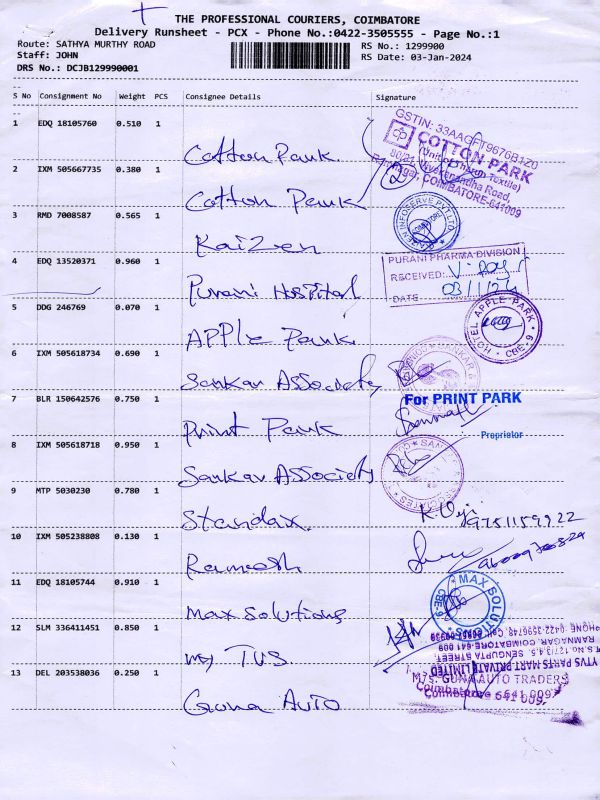 THE PROFESSIONAL COURIERS, COIMBATORE
Delivery Runsheet - PCX - Phone No.:0422-3505555 - Page No.:1
Route: SATHYA MURTHY ROAD
RS No.: 1299900
Staff: JOHN
RS Date: 03-Jan-2024
DRS No.: DCJB129990001
S No Consignment No Weight PCS Consignee Details Signature
1 EDQ 18105760 0.510 1
Cotton Park
GSTIN: 33AAGFT9676B1Z0
COTTON PARK
(Unit of Tharun Textile)
80/21 Vivekanandha Road,
Ram Nagar, COIMBATORE-641009
2 IXM 505667735 0.380 1
Cotton Park
2
3 RMD 7008587 0.565 1
Kaizen
KAIZEN INFOSERVE PVT.LTD.
COIMBATORE
4 EDQ 13520371 0.960 1
Purani Hospital
PURANI PHARMA DIVISION
RECEIVED:
DATE 03/1/24
5 DDG 246769 0.070 1
APPle Park
HOTEL APPLE PARK
CBE-9
6 IXM 505618734 0.690 1
Sankar Associety
7 BLR 150642576 0.750 1
Print Park
For PRINT PARK
Proprietor
8 IXM 505618718 0.950 1
Sankar Associety
9 MTP 5030230 0.780 1
Standax
9751159922
10 IXM 505238808 0.130 1
Ramesh
11 EDQ 18105744 0.910 1
Max Solutions
MAX SOLUTIONS
CBE-9
12 SLM 336411451 0.850 1
my TVS
YTVS PARTS MART PRIVATE LIMITED
SENGUPTA STREET,
RAMNAGAR, COIMBATORE-641 009
13 DEL 203538036 0.250 1
Guna Auto
M/s. GUNA AUTO TRADERS
Coimbatore - 641 009.